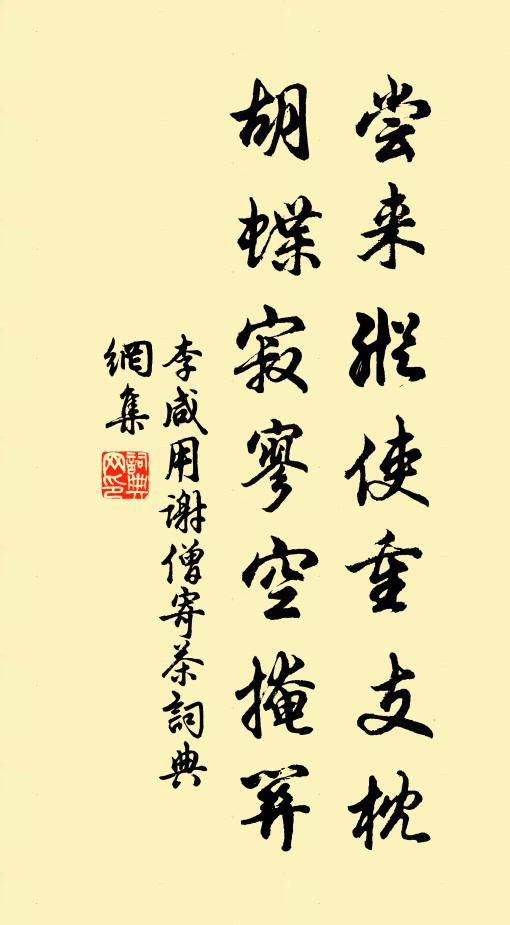 尝来纵使重支枕
胡蝶寂寥空掩關
李咸用谢僧寄茶詞典
網集
詞典网印